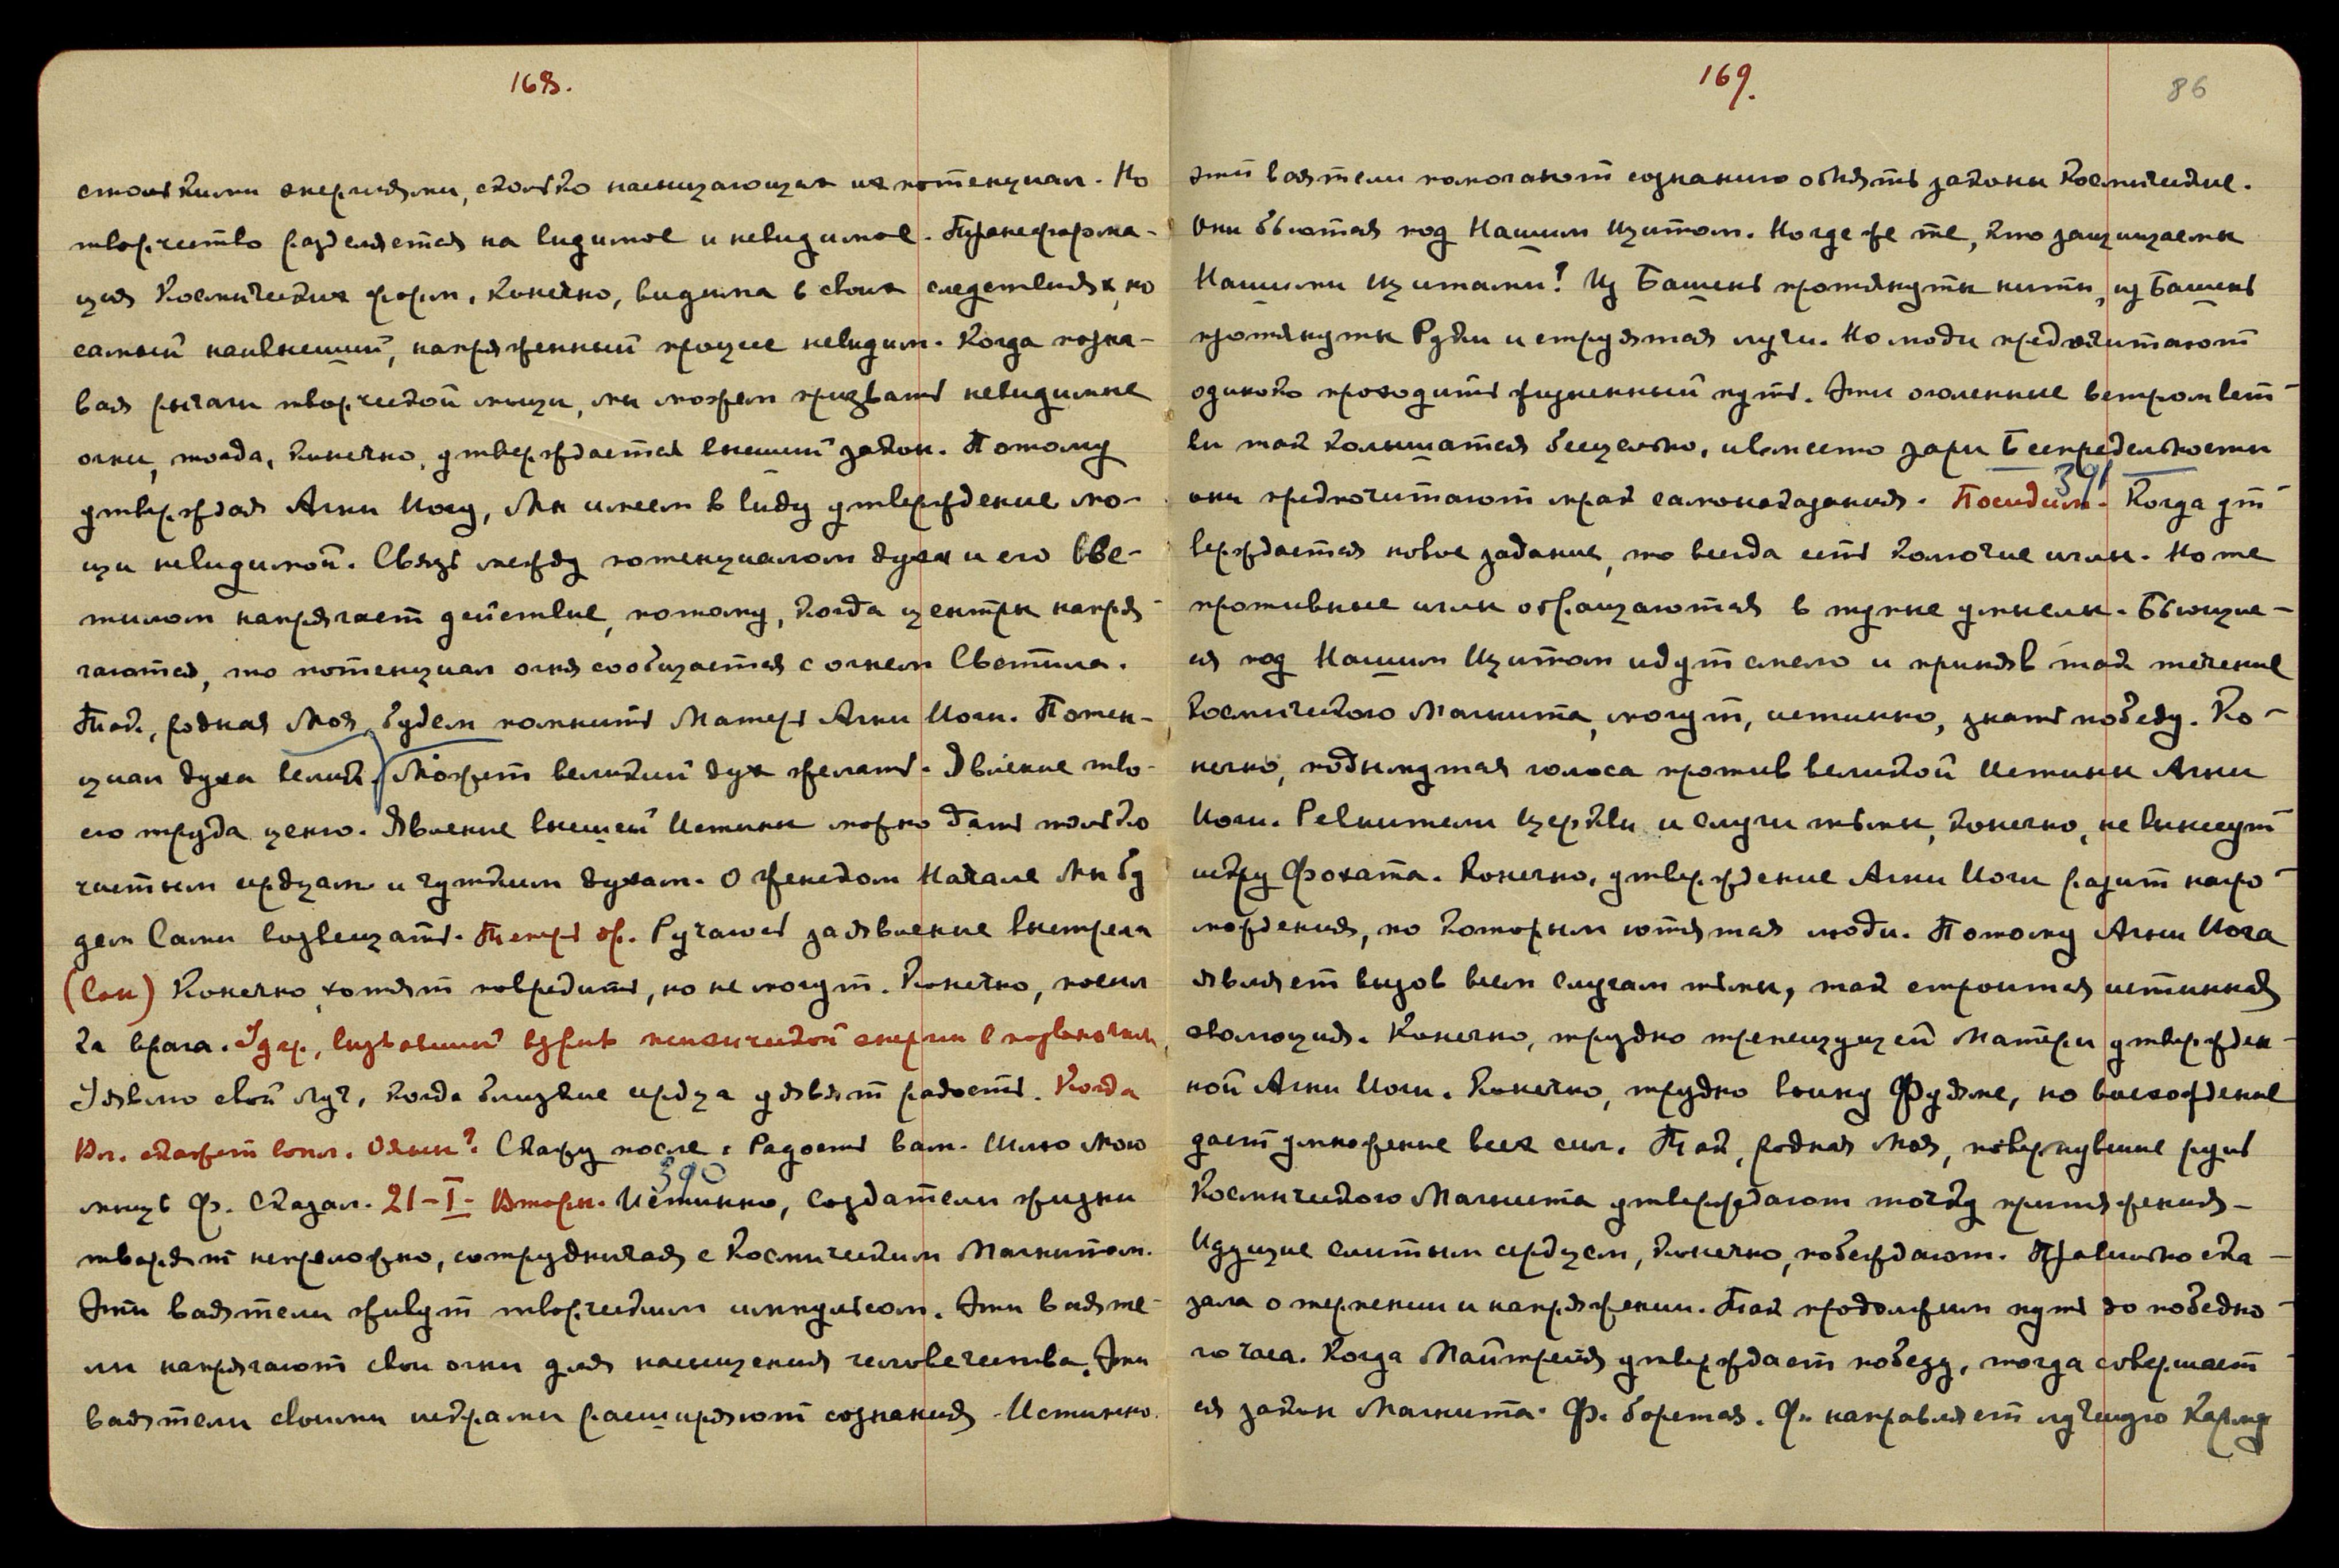 168.
столькими энергиями, сколько насыщающих их потенциал. Но
творчество разделяется на видимое и невидимое. Трансформа-
ция Космических форм, конечно, видима в своих следствиях, но
самый наивысший, напряженный процесс невидим. Когда позна-
вая рычаги творческой мощи, мы можем призвать невидимые
огни, тогда, конечно, утверждается высший закон. Потому
утверждая Агни Йогу, Мы имеем в виду утверждение мо-
щи невидимой. Связь между потенциалом духа и его Све-
тилом напрягает действие, потому, когда центры напря-
гаются, то потенциал огня сообщается с огнем Светила.
Так, родная Моя, будем помнить Матерь Агни Йоги. Потен-
циал духа велик. Может великий дух желать. Явление тво-
его труда ценно. Явление высшей Истины можно дать только
чистым сердцам и чутким духам. О женском Начале Мы бу
дем Сами возвещать. Теперь др. Ручаюсь за явление выстрела
(Сон) Конечно, хотят повредить, но не могут. Конечно, посыл
ка врага. Удар, вызвавший взрыв психической энергии в позвоночнике
Уявлю свой луч, когда близкие сердца уявят радость. Когда
Вл. скажет вопл. Скажу после. Радость вам. Шлю мою
мощь Ф. Сказал. 21-I- Вторн. 390 Истинно, создатели жизни
творят непреложно, сотрудничая с Космическим Магнитом.
Эти ваятели живут творческим импульсом. Эти ваяте-
ли напрягают свои огни для насыщения человечества. Эти
ваятели своими искрами расширяют сознания. Истинно.
169.
86
эти ваятели помогают сознанию объять законы Космические.
Они бьются под Нашим Щитом. Но где же те, кто защищаемы
Нашими Щитами? Из Башень протянуты нити, из Башень
протянуты Руки и струятся лучи. Но люди предпочитают
одиноко проходить жизненный путь. Эти оголенные ветром вет-
ви так колышатся бесцельно, и вместо зари Беспредельности
они предпочитают мрак самонаказания. Посидим. 391 Когда ут-
верждается новое задание, то всегда есть колючие иглы. Но те
противные иглы обращаются в тупые умыслы. Бьющие-
ся под Нашим Щитом идут смело и приняв так течение
Космического Магнита, могут, истинно, знать победу. Ко-
нечно, подымутся голоса против великой Истины Агни
Йоги. Ревнители Церкви и слуги тьмы, конечно, не вынесут
искру Фохата. Конечно, утверждение Агни Йоги разит нагро-
мождения, по которым ютятся люди. Потому Агни Йога
являет вызов всем слугам тьмы, так строится истинная
эволюция. Конечно, трудно трепещущей Матери утвержден-
ной Агни Йоги. Конечно, трудно воину Фуяме, но восхождение
дает умножение всех сил. Так, родная Моя, повернувшие руль
Космического Магнита утверждают точку притяжения-
Идущие слитным сердцем, конечно, побеждают. Правильно ска-
зала о терпении и напряжении. Так продолжим путь до победно-
го часа. Когда Майтрейя утверждает победу, тогда совершает
ся закон Магнита. Ф. борется. Ф. направляет лучшую Карму